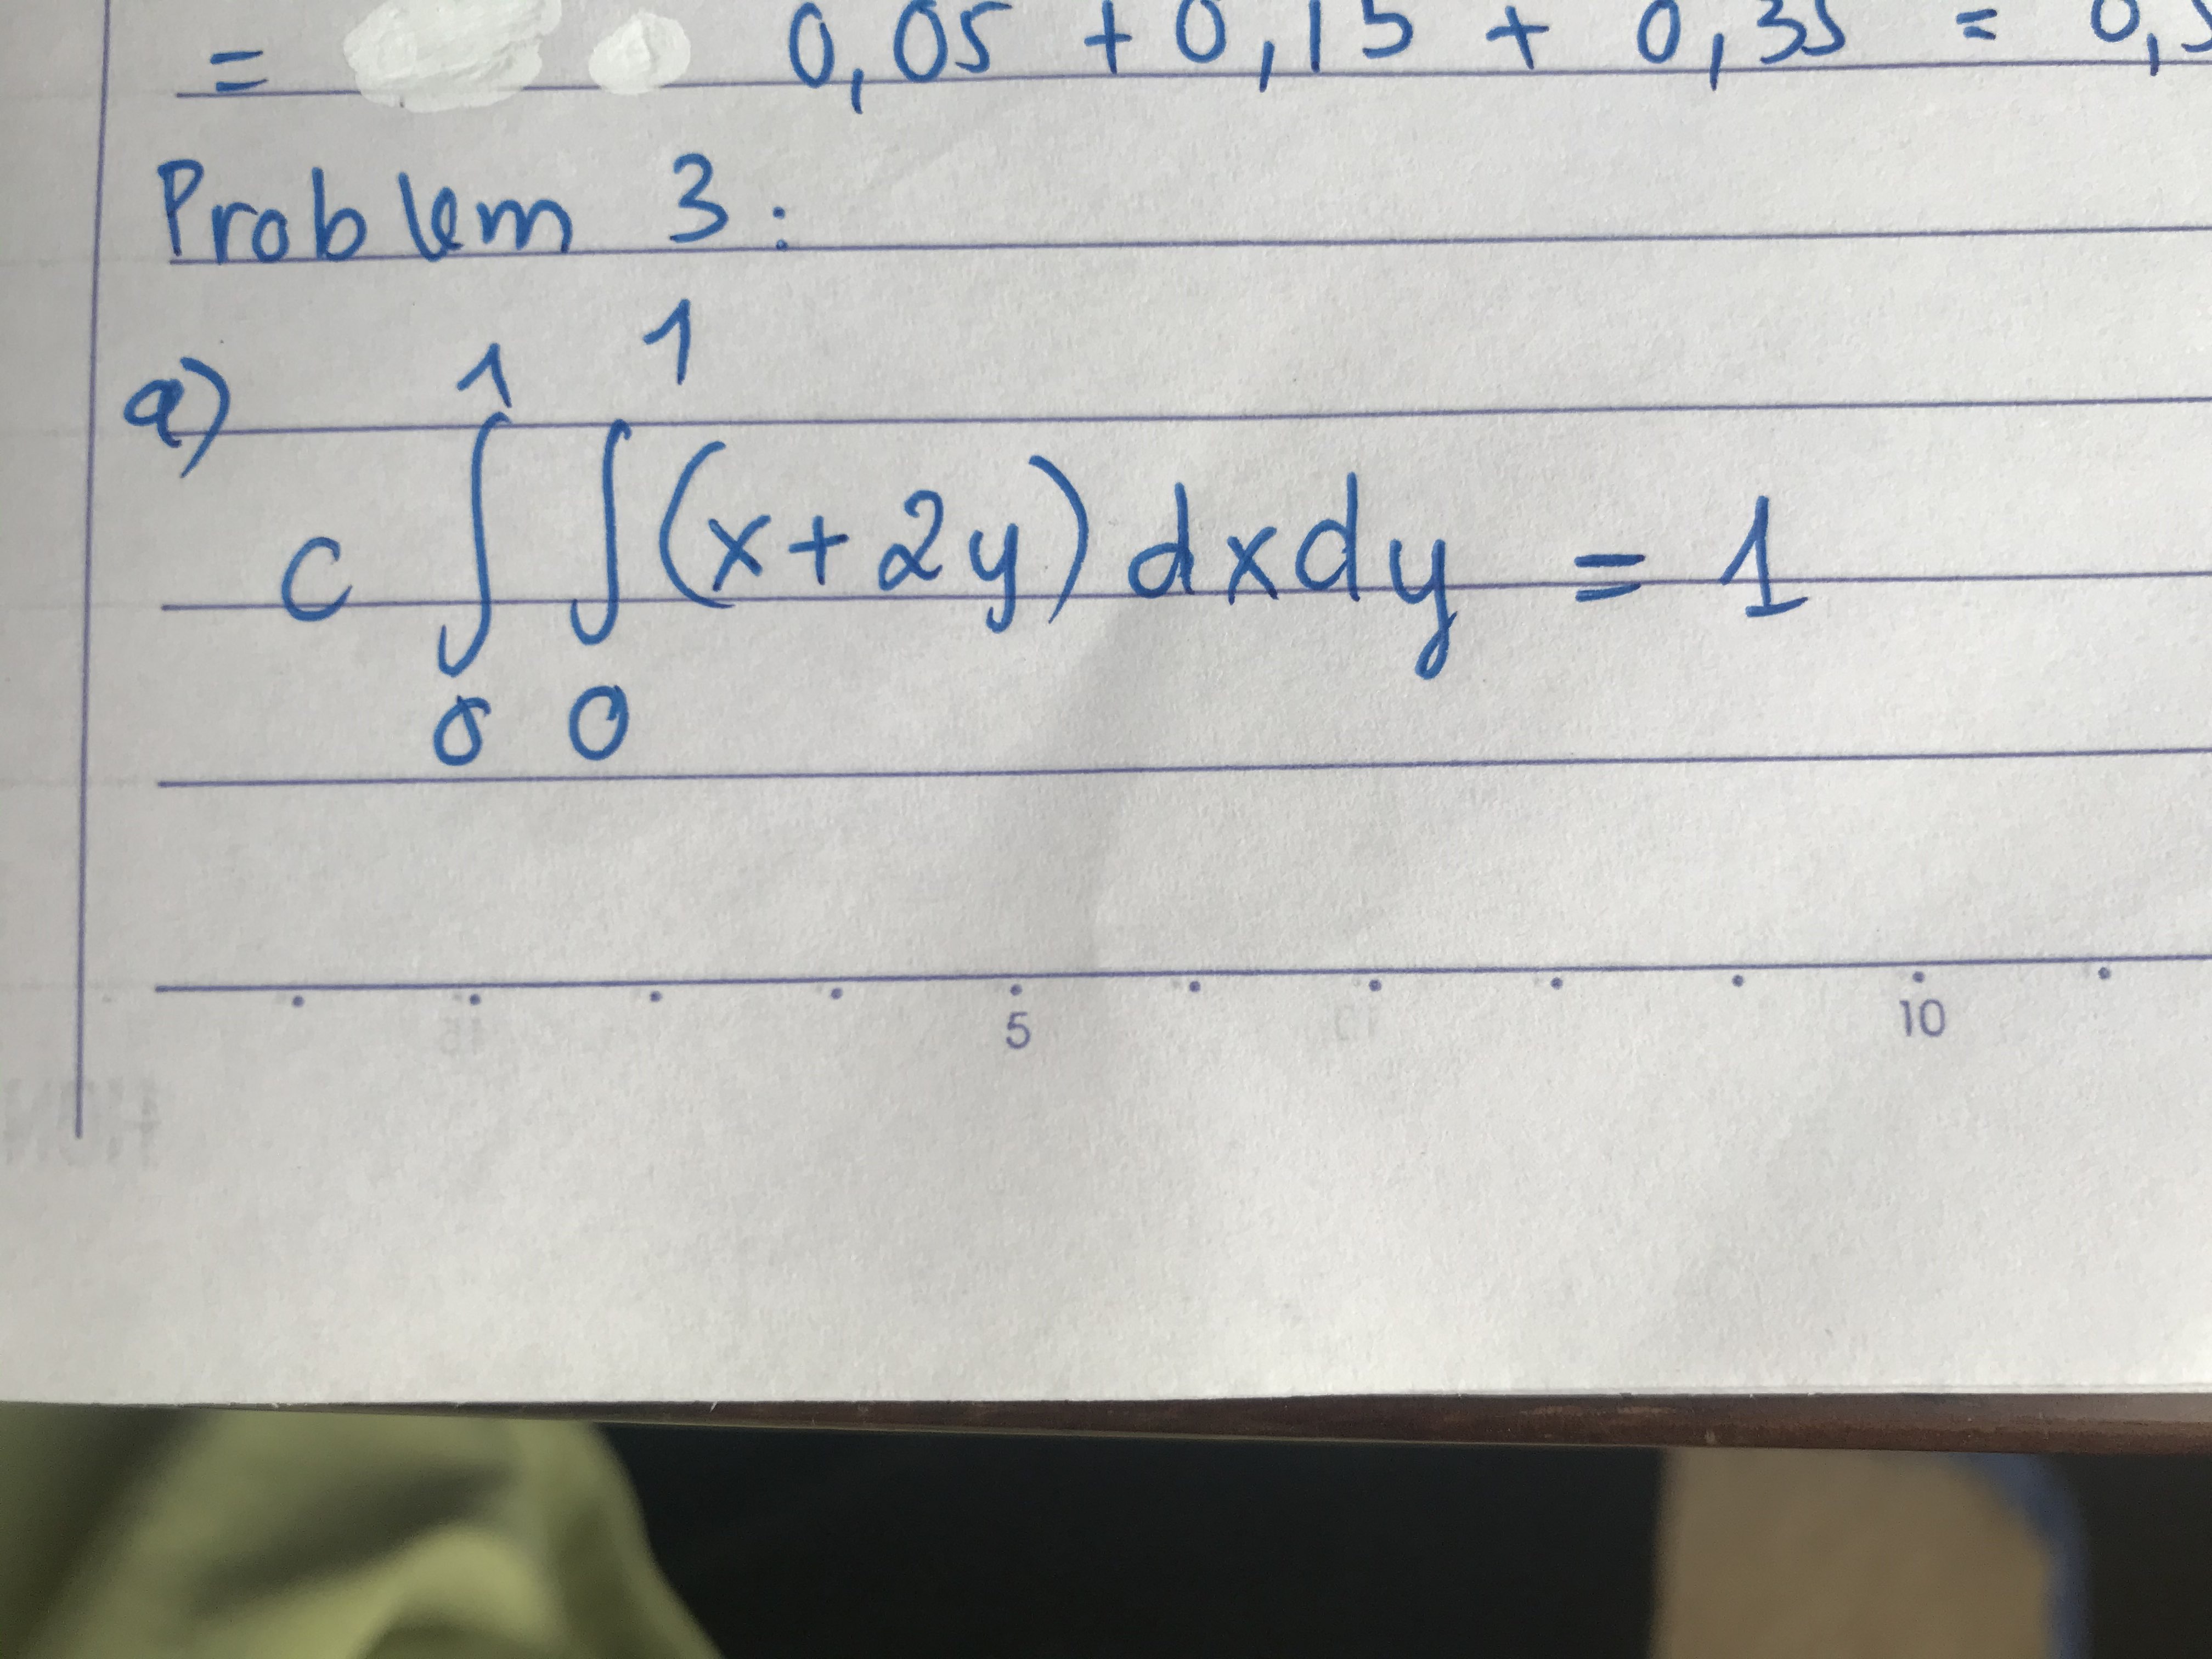 = 0,05 + 0,15 + 0,35 = 0,
Problem 3:
a)
1 1
c ∫ ∫ (x+2y) dxdy = 1
0 0
5 10